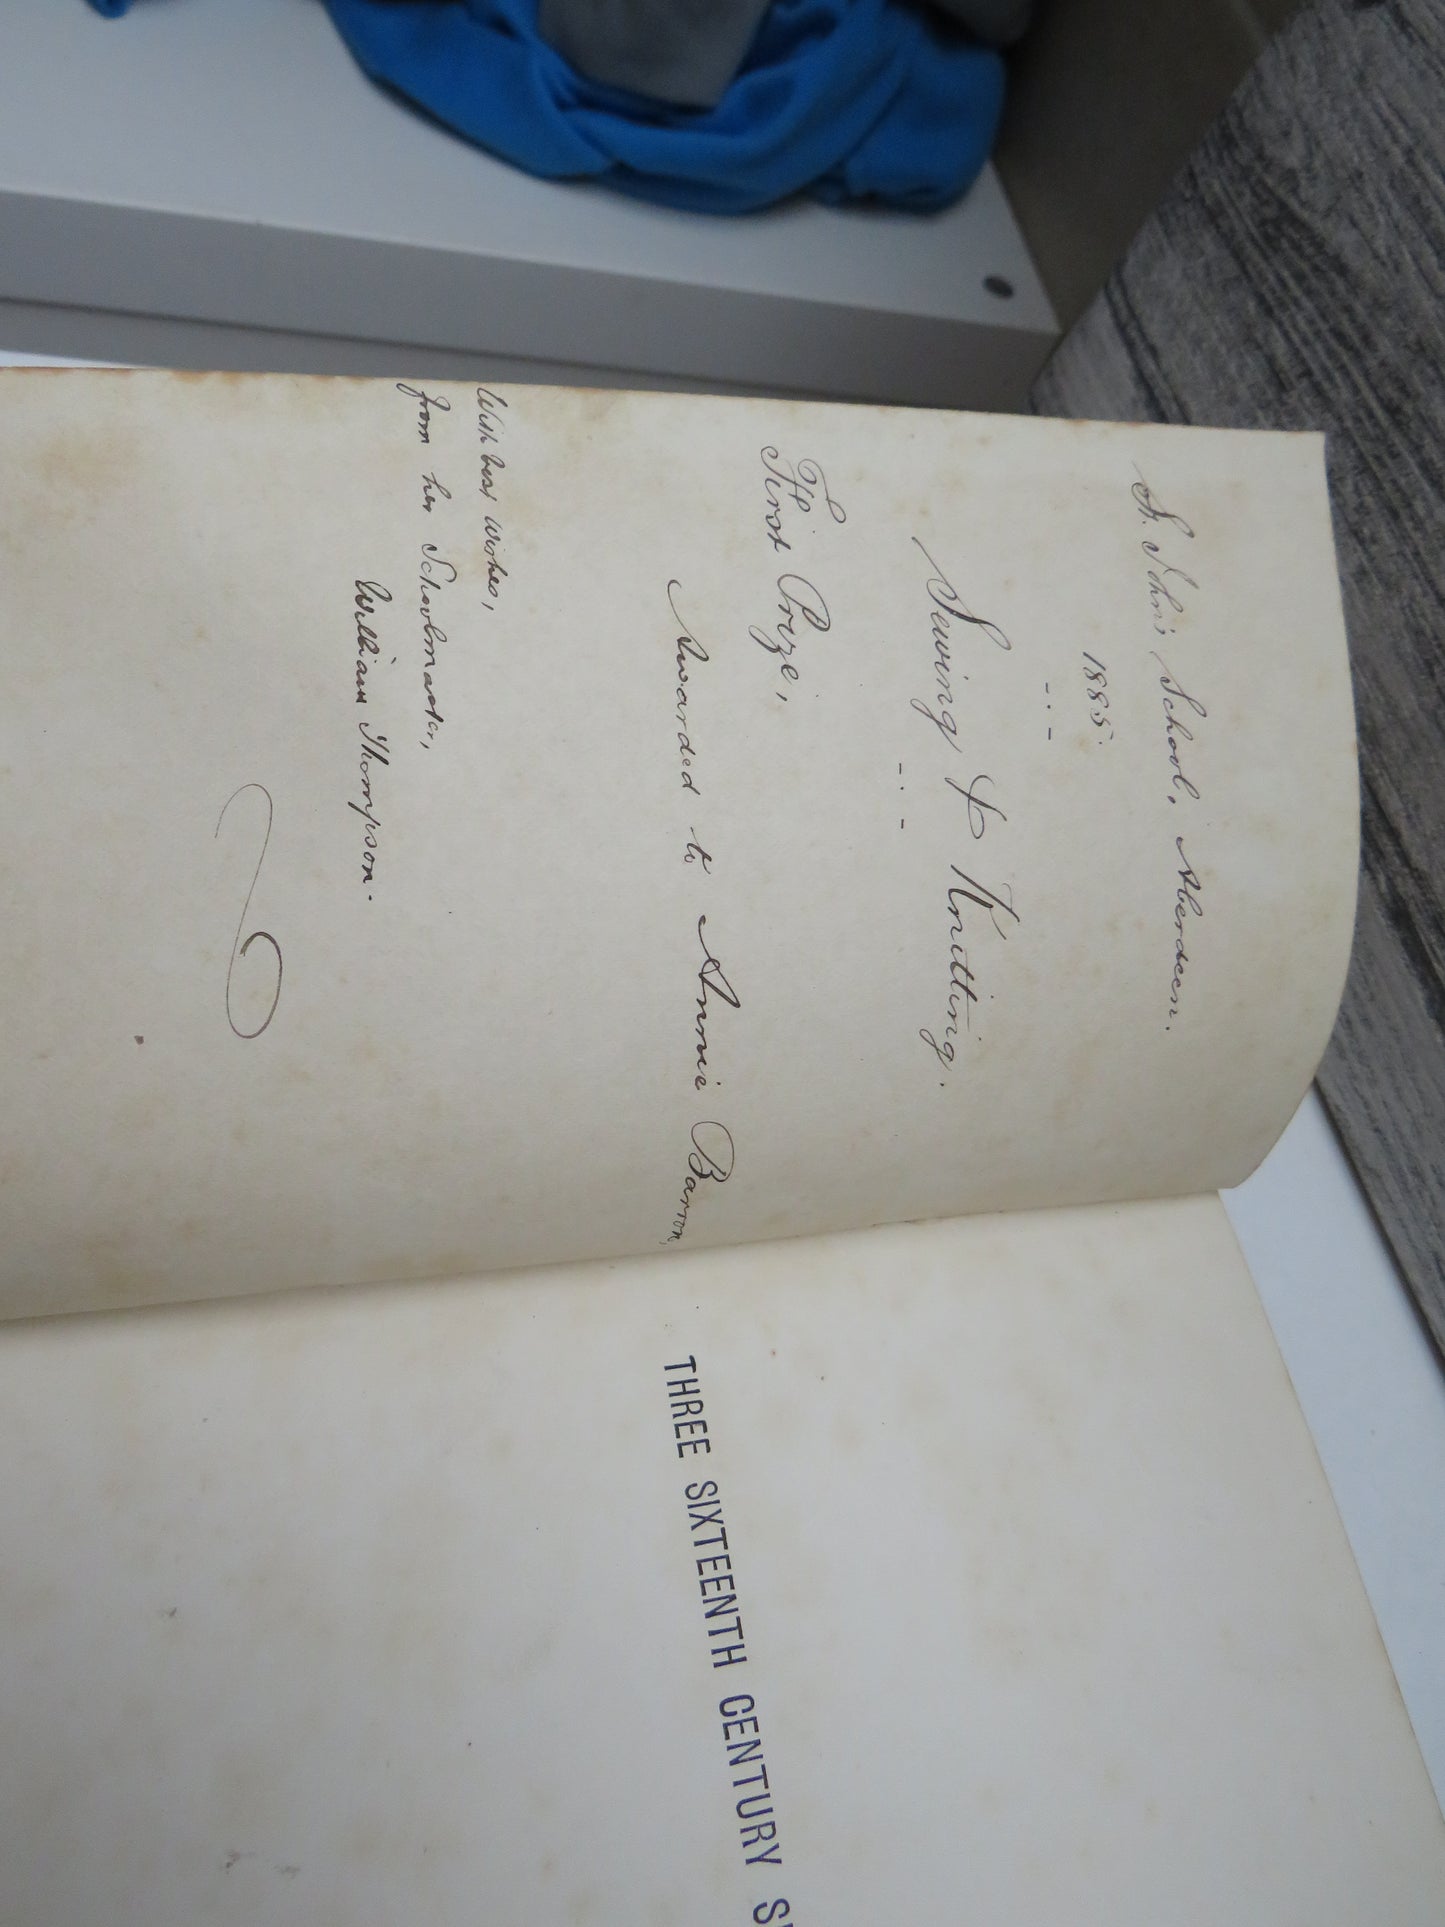 St. John's School, Aberdeen.
1885.
- . -
Sewing & Knitting.
- . -
First Prize,
Awarded to Annie Barron,
With best wishes,
from her Schoolmaster,
William Thompson.
THREE SIXTEENTH CENTURY